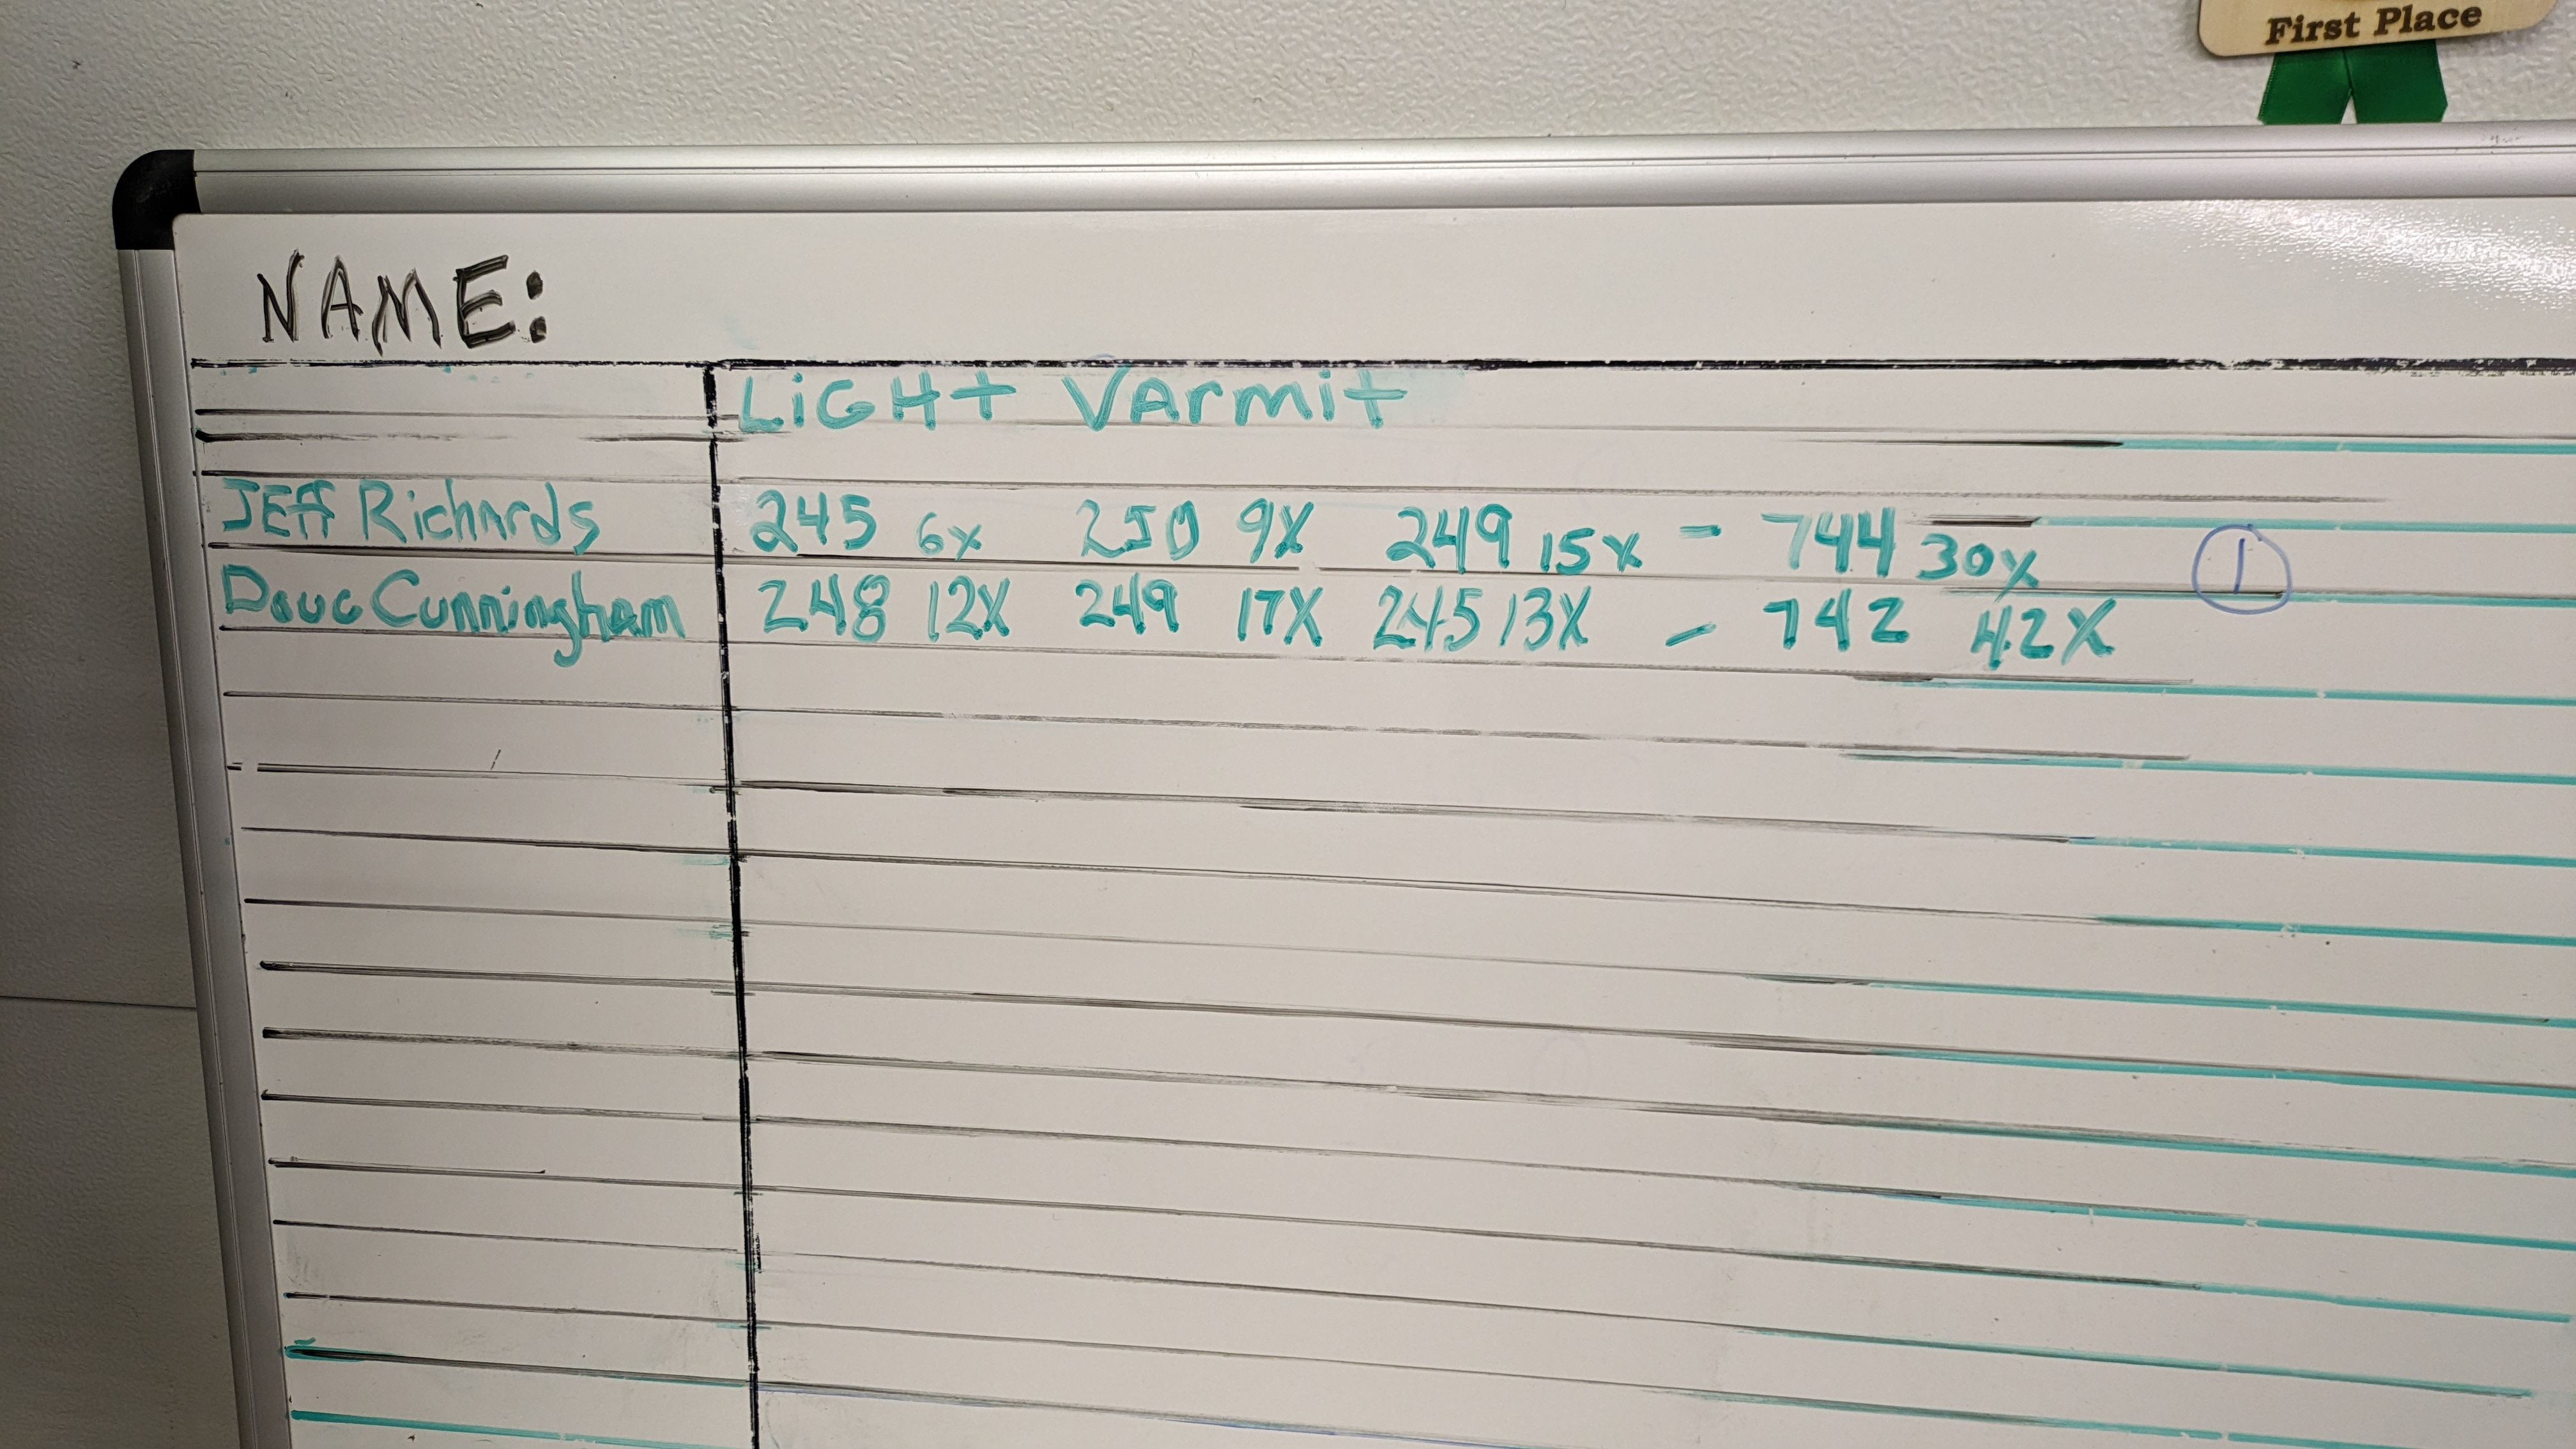 First Place
NAME:
LiGHt VArmit
JEff Richards 245 6x 250 9X 249 15x - 744 30x 1
Doug Cunningham 248 12X 249 17X 245 13X - 742 42X